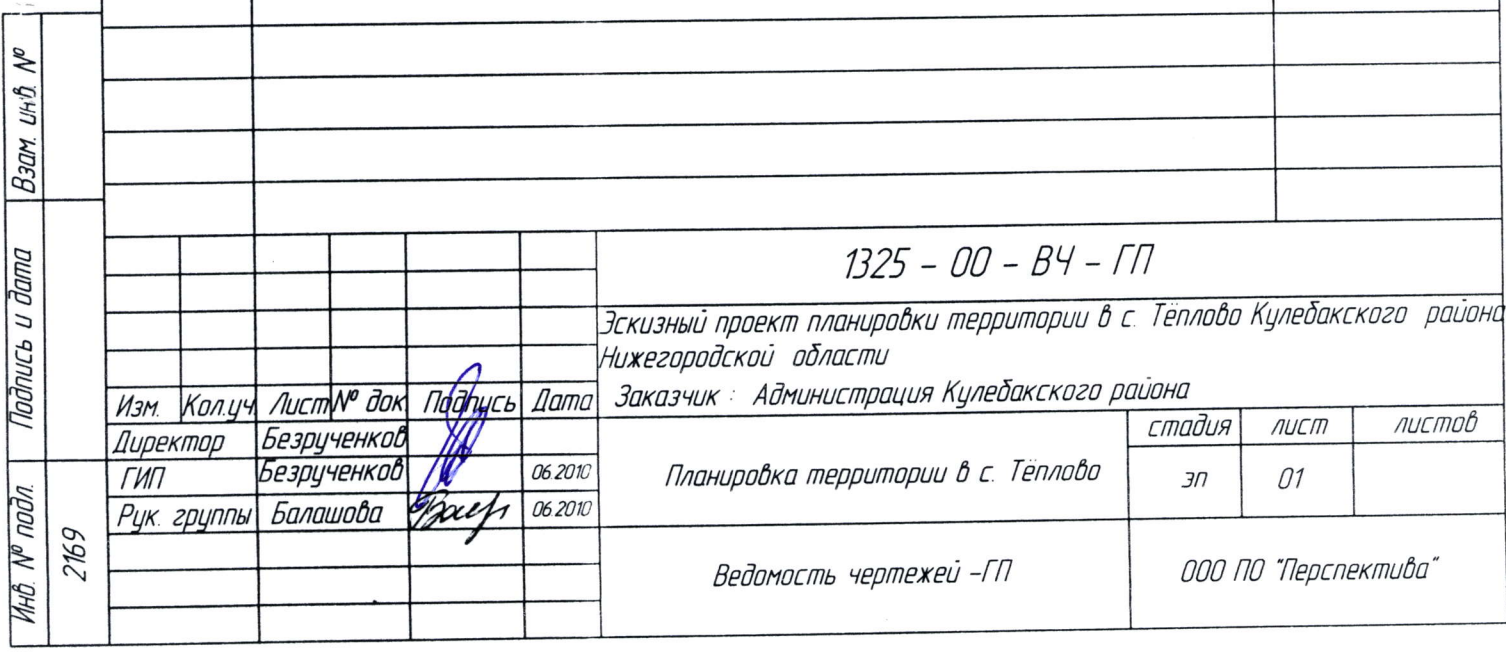 Взам. инв. №
Подпись и дата
Инв. № подл.
2169
1325 - 00 - ВЧ - ГП
Эскизный проект планировки территории в с. Тёплово Кулебакского района
Нижегородской области
Заказчик : Администрация Кулебакского района
Изм. Кол.уч Лист № док Подпись Дата
Директор Безрученков
ГИП Безрученков 06.2010
Рук. группы Балашова 06.2010
Планировка территории в с. Тёплово
стадия лист листов
эп 01
Ведомость чертежей -ГП
ООО ПО "Перспектива"